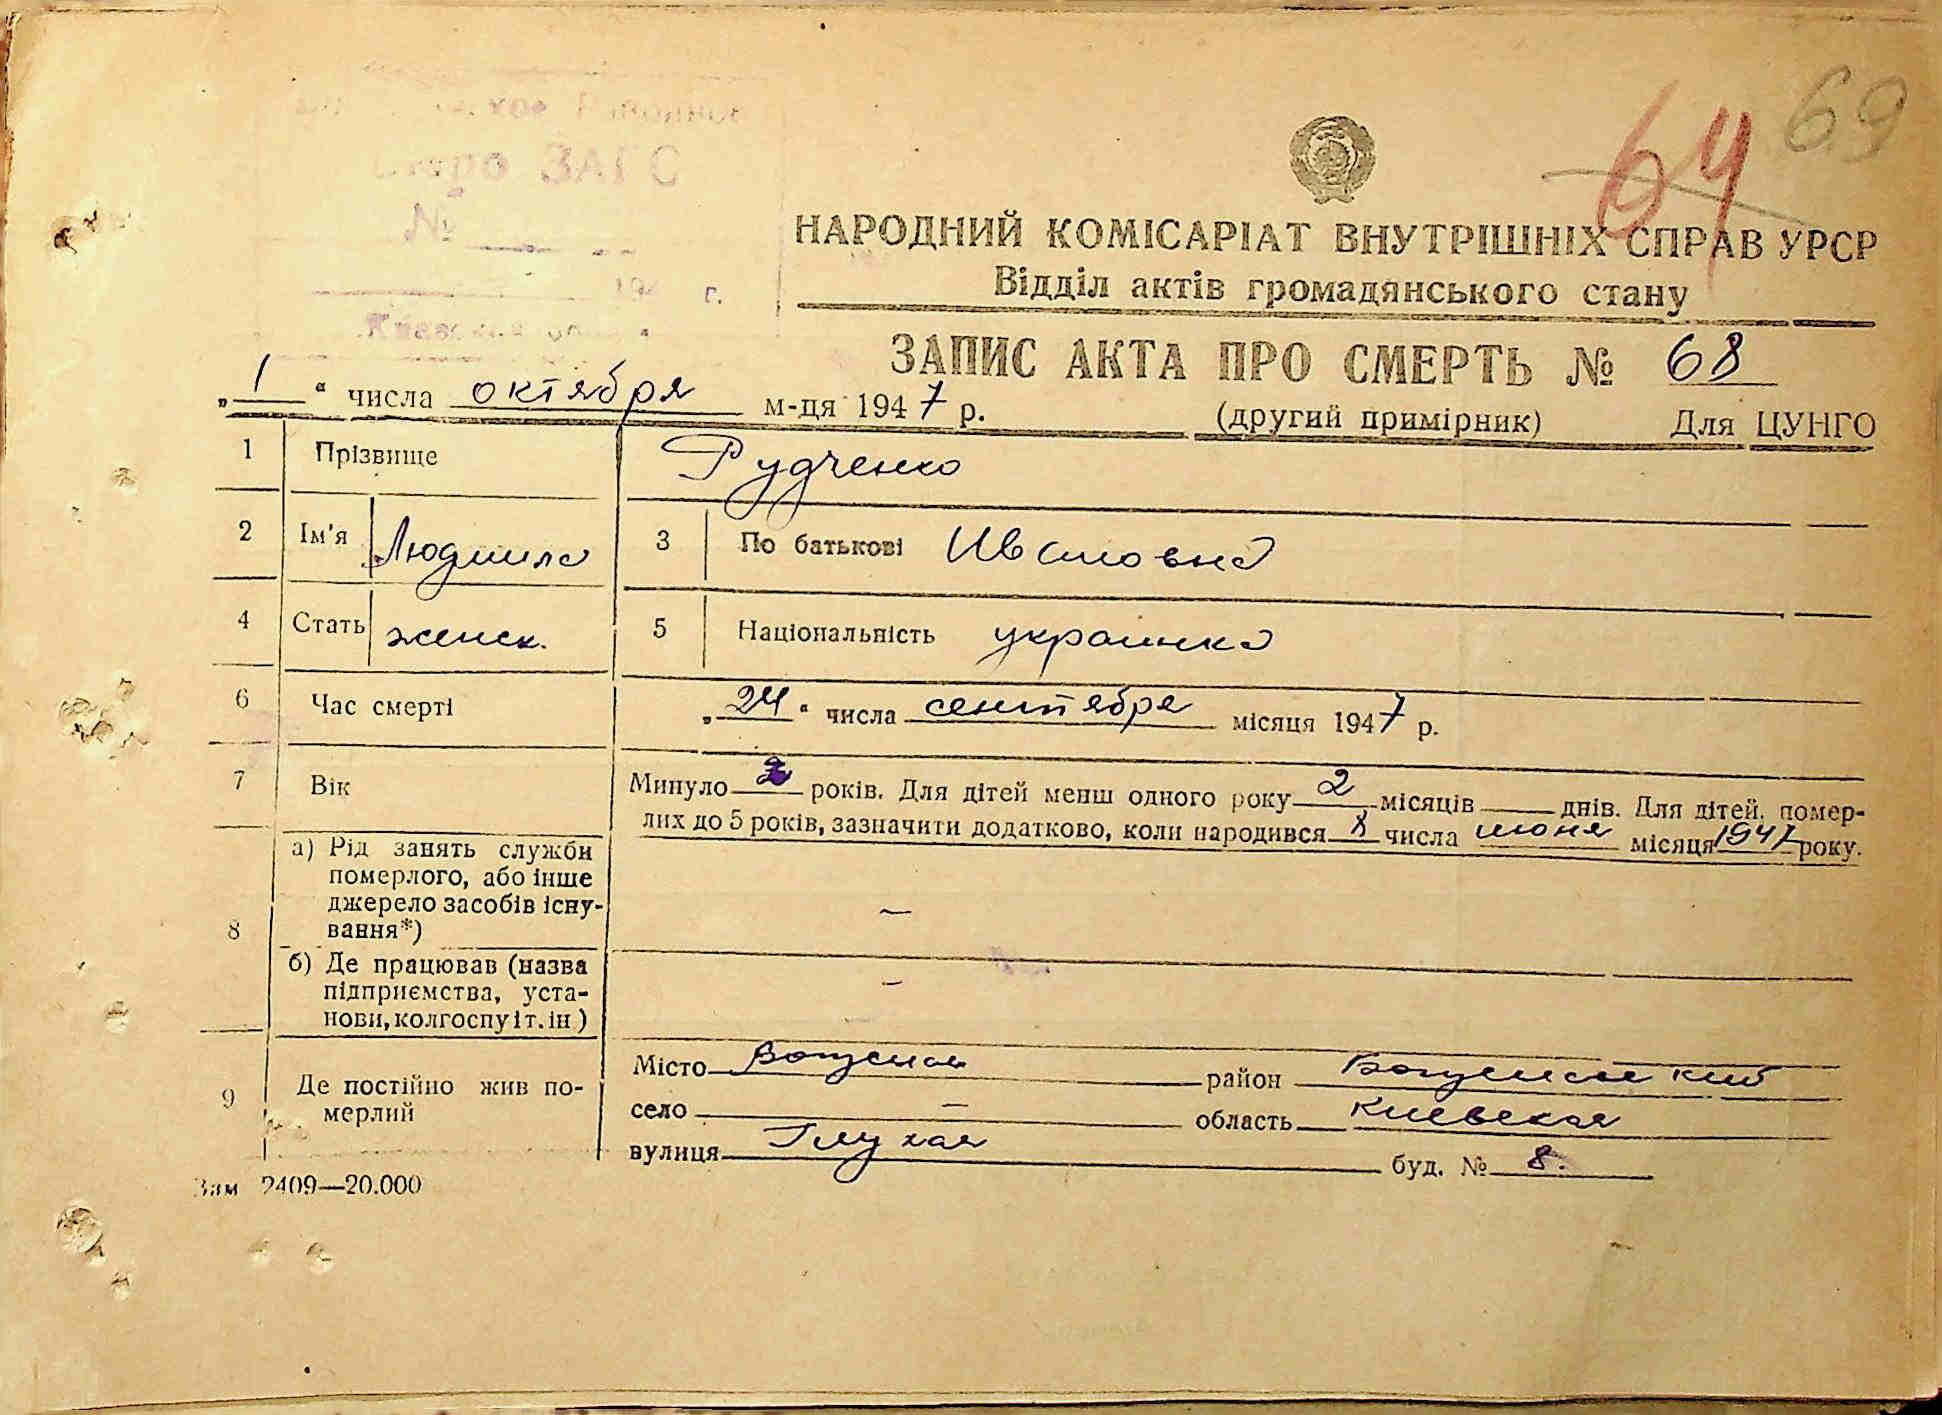 64 69
Бюро ЗАГС
№
194 г.
НАРОДНИЙ КОМІСАРІАТ ВНУТРІШНІХ СПРАВ УРСР
Відділ актів громадянського стану
ЗАПИС АКТА ПРО СМЕРТЬ № 68
„1“ числа октября м-ця 1947 р. (другий примірник) Для ЦУНГО
1 Прізвище Рудченко
2 Ім'я Людмила 3 По батькові Ивановна
4 Стать женск. 5 Національність украинка
6 Час смерті „24“ числа сентября місяця 1947 р.
7 Вік Минуло років. Для дітей менш одного року 2 місяців днів. Для дітей, помер-
лих до 5 років, зазначити додатково, коли народився 8 числа июня місяця 1947 року.
8 а) Рід занять служби
померлого, або інше
джерело засобів існу-
вання*) –
б) Де працював (назва
підприємства, уста-
нови, колгоспу і т. ін) –
9 Де постійно жив по-
мерлий
Місто Богуслав район Богуславский
село – область Киевская
вулиця Глухая буд. № 8.
Зам 2409—20.000